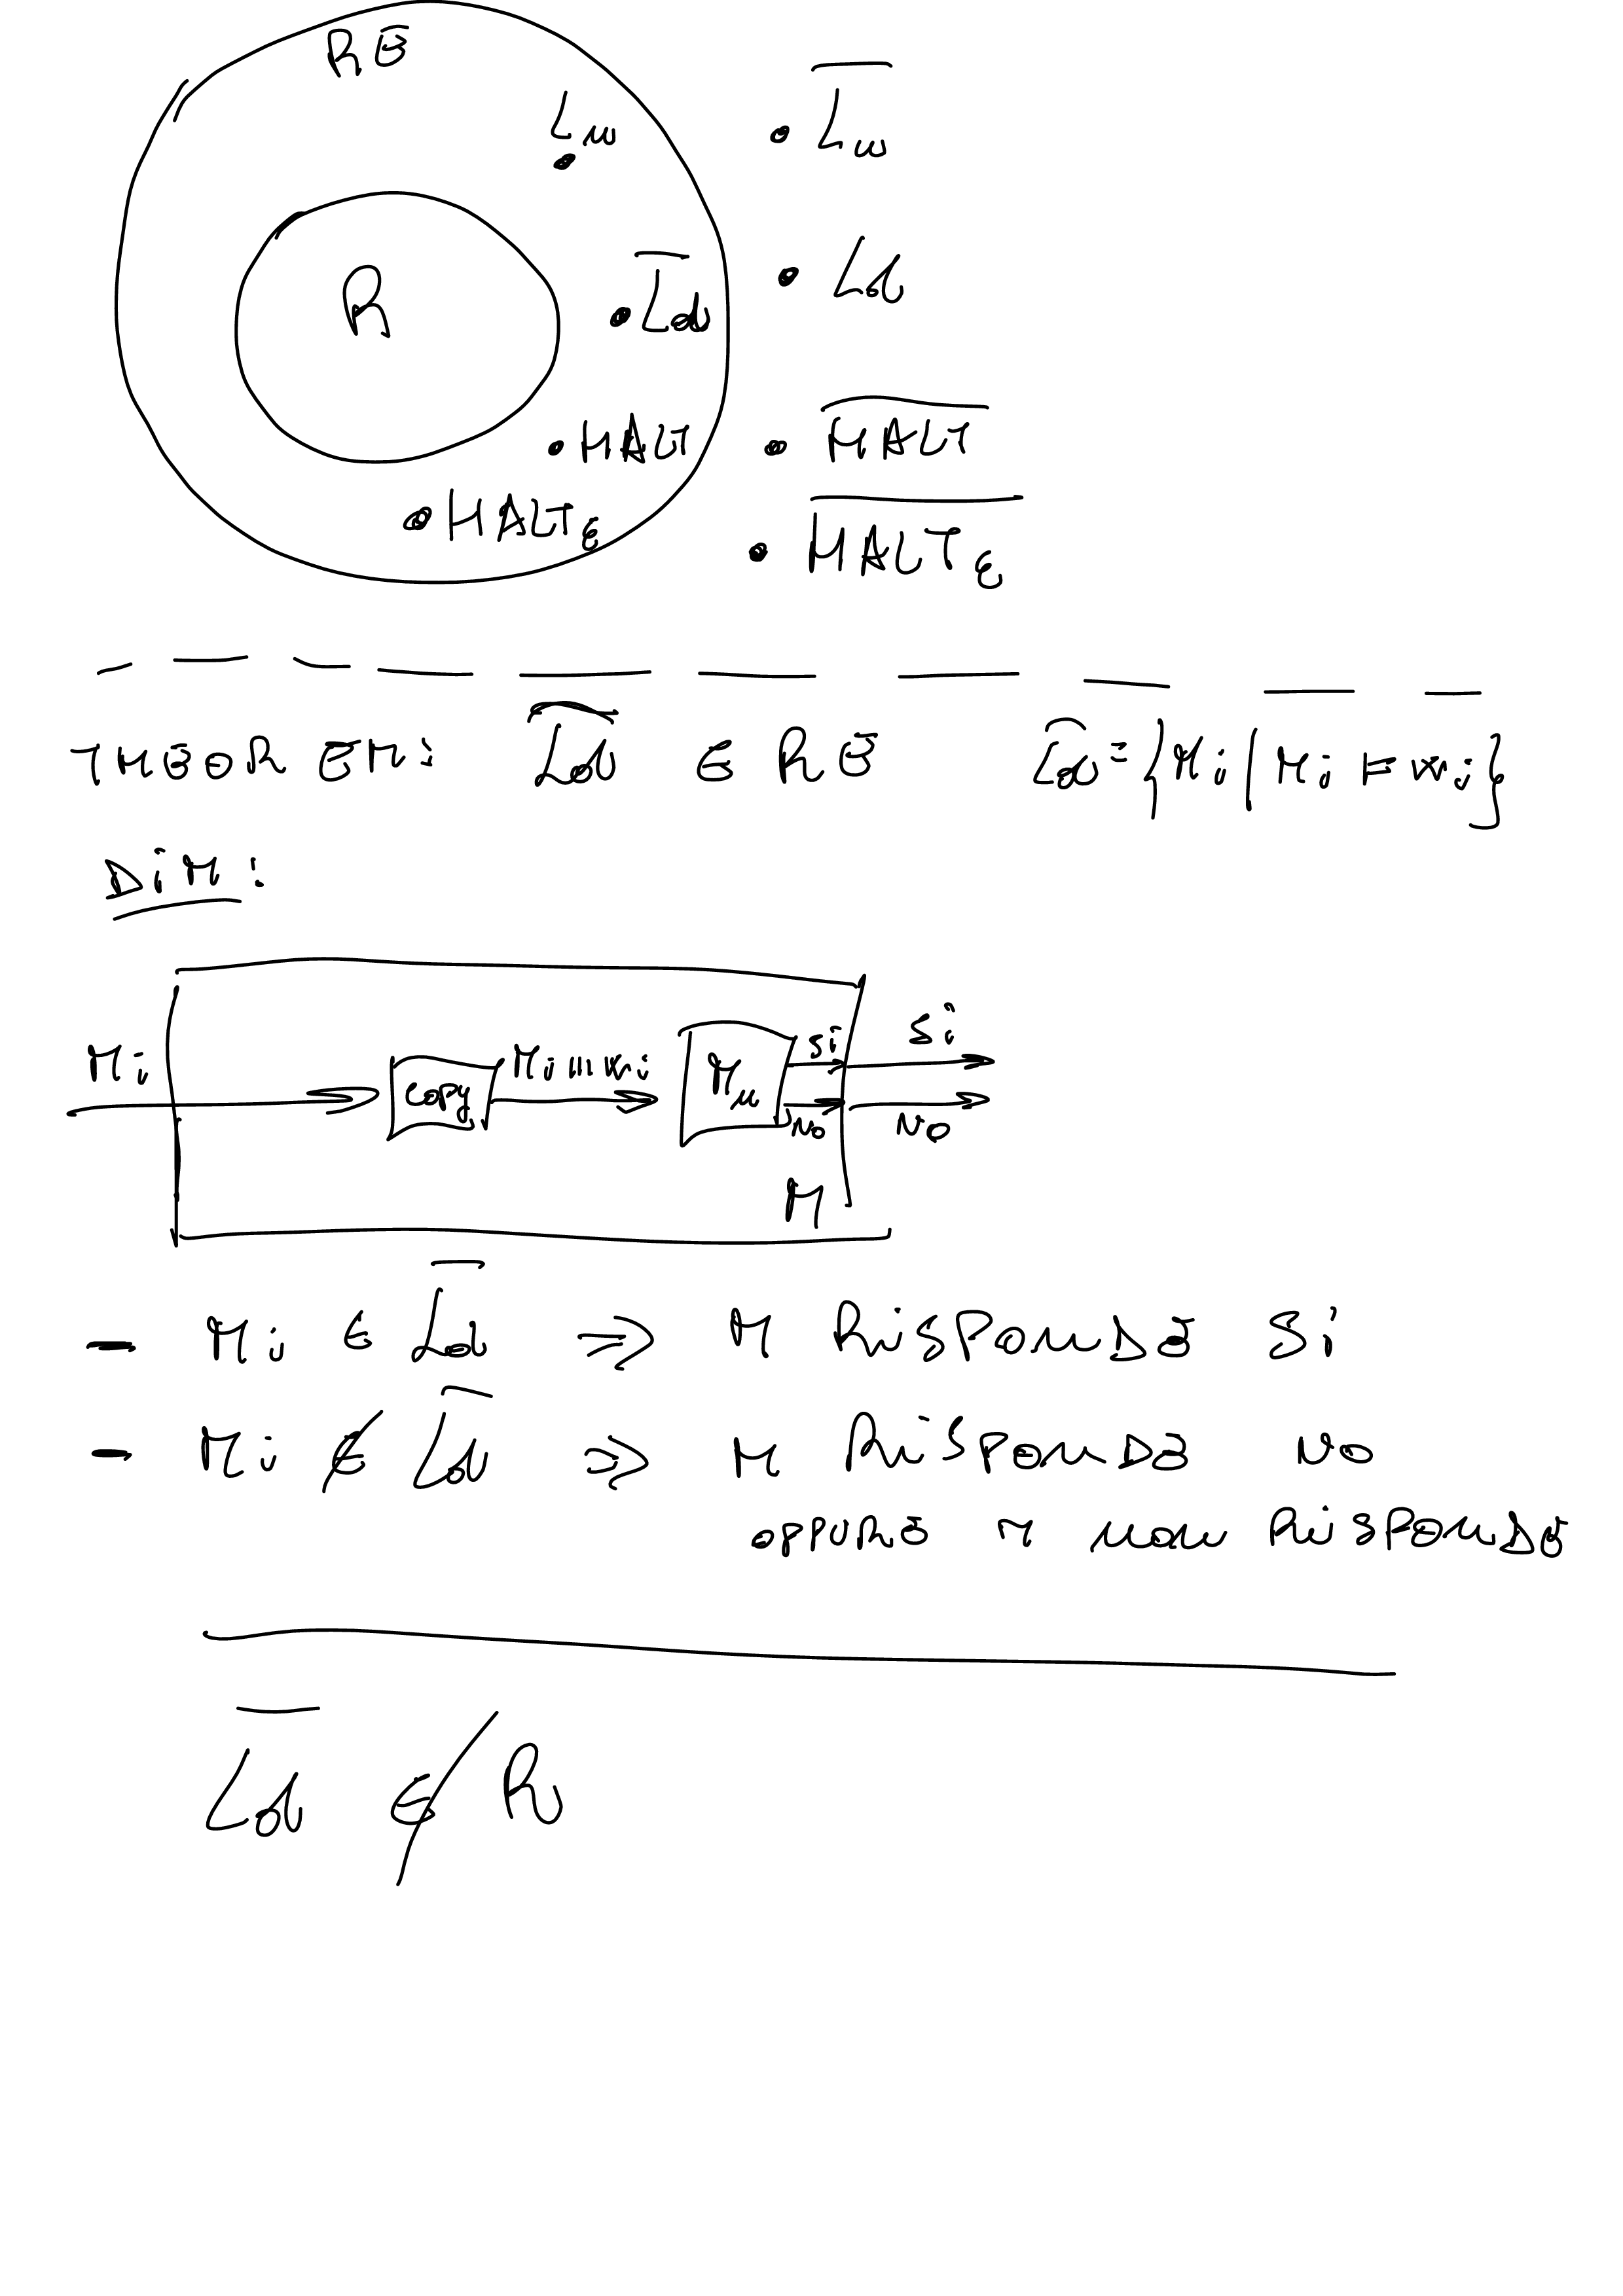 RE
L_u
\overline{L_u}
R
\overline{L_d}
L_d
HALT
\overline{HALT}
HALT_ε
\overline{HALT_ε}
THEOREM: \overline{L_d} ∈ RE \overline{L_d} = {M_i | M_i ⊢ w_i}
DIM:
M_i
copy
M_i 111 w_i
M_u
SI
SI
NO
NO
M
- M_i ∈ \overline{L_d} ⇒ M RISPONDE SI
- M_i ∉ \overline{L_d} ⇒ M RISPONDE NO
OPPURE M NON RISPONDE
\overline{L_d} ∉ R